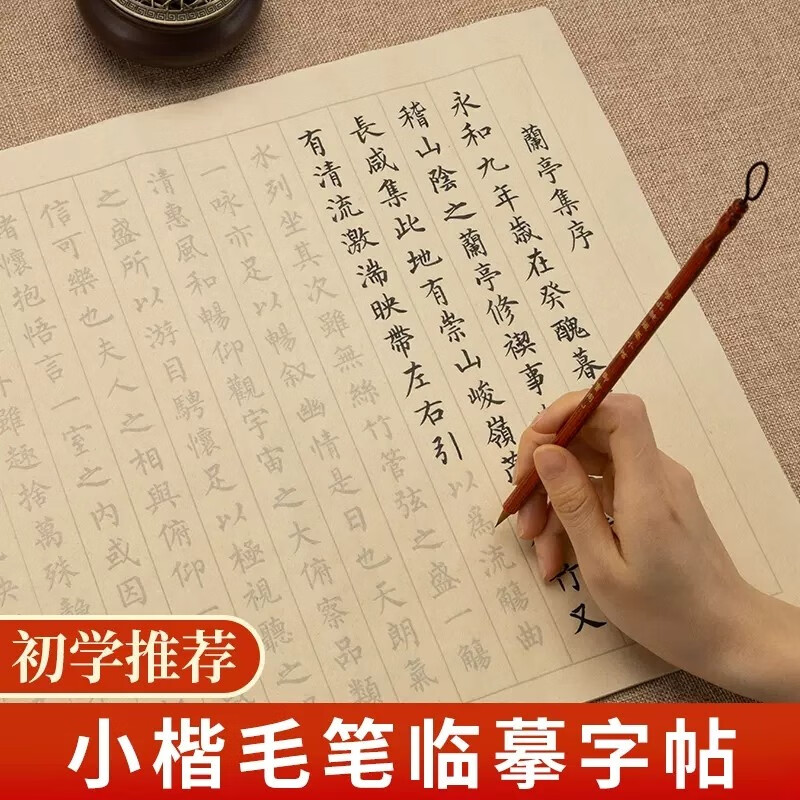 蘭亭集序
永和九年歲在癸醜暮
稽山陰之蘭亭修禊事
長咸集此地有崇山峻嶺 竹又
有清流激湍映帶左右引以爲流觴曲
水列坐其次雖無絲竹管弦之盛一觴
一咏亦足以暢叙幽情是日也天朗氣
清惠風和暢仰觀宇宙之大俯察品類
之盛所以游目騁懷足以極視聽之
信可樂也夫人之相與俯仰一
懷抱悟言一室之内或因
雖趣捨萬殊
初学推荐
小楷毛笔临摹字帖